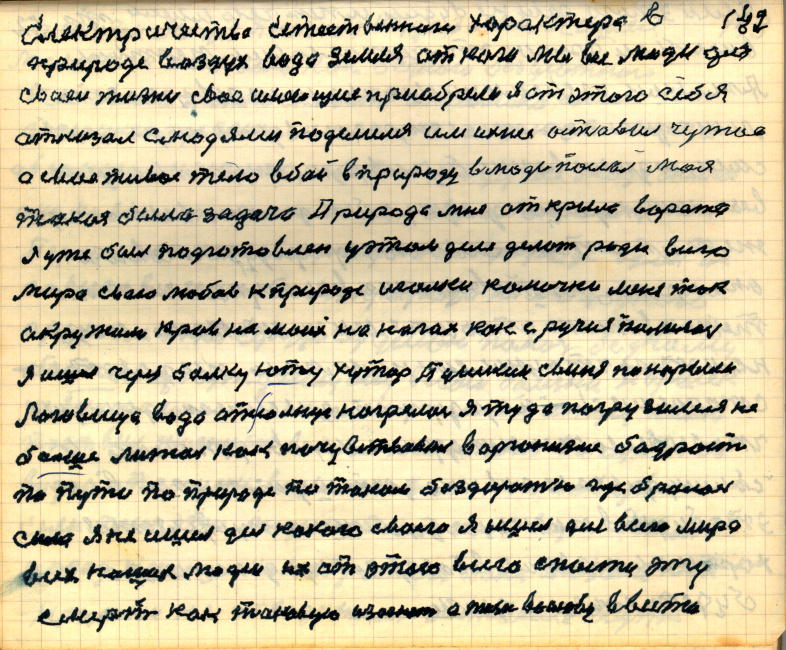 Електричества естественного характера в 182
природе воздух вода земля от кого мы все люди для
своей жизни свое имеющие приабрели я от этого себя
атказал с людями поделился им ихнее отавил чужое
а свое живое тело в бой в природу в люди послал моя
такая была задача Природа мне открыла варата
я уже был подготовлен у этом деле делат ради всего
мира сваю любов к природе иголки камочки меня так
акружили кров на моих на ногах как с ручия полилас
я ишел через балку юту хутор Пушкин свиня понарыли
логовища вода от солнце нагрелас я туда погрузился не
болше лижал как почуствовал в организме бадрост
по пути по природе по таком бездоражю где бралас
сила я не ишел для какого своего я ишел для всего мира
всех наших людей их от этого всего спасти эту
смерт как таковую а ввести